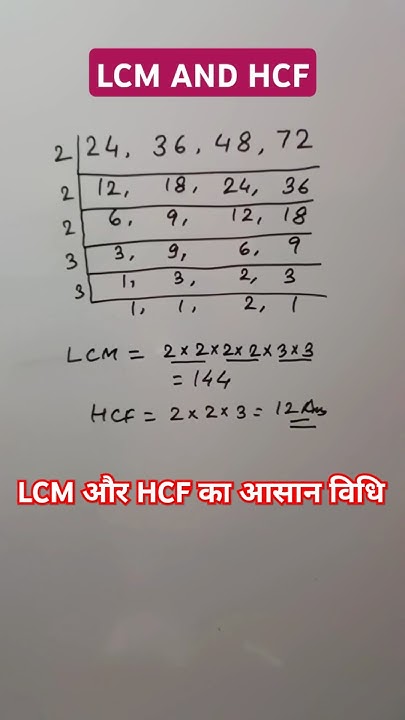 LCM AND HCF
2 24, 36, 48, 72
2 12, 18, 24, 36
2 6, 9, 12, 18
3 3, 9, 6, 9
3 1, 3, 2, 3
1, 1, 2, 1
LCM = 2 × 2 × 2 × 2 × 3 × 3
= 144
HCF = 2 × 2 × 3 = 12 Ans
LCM और HCF का आसान विधि